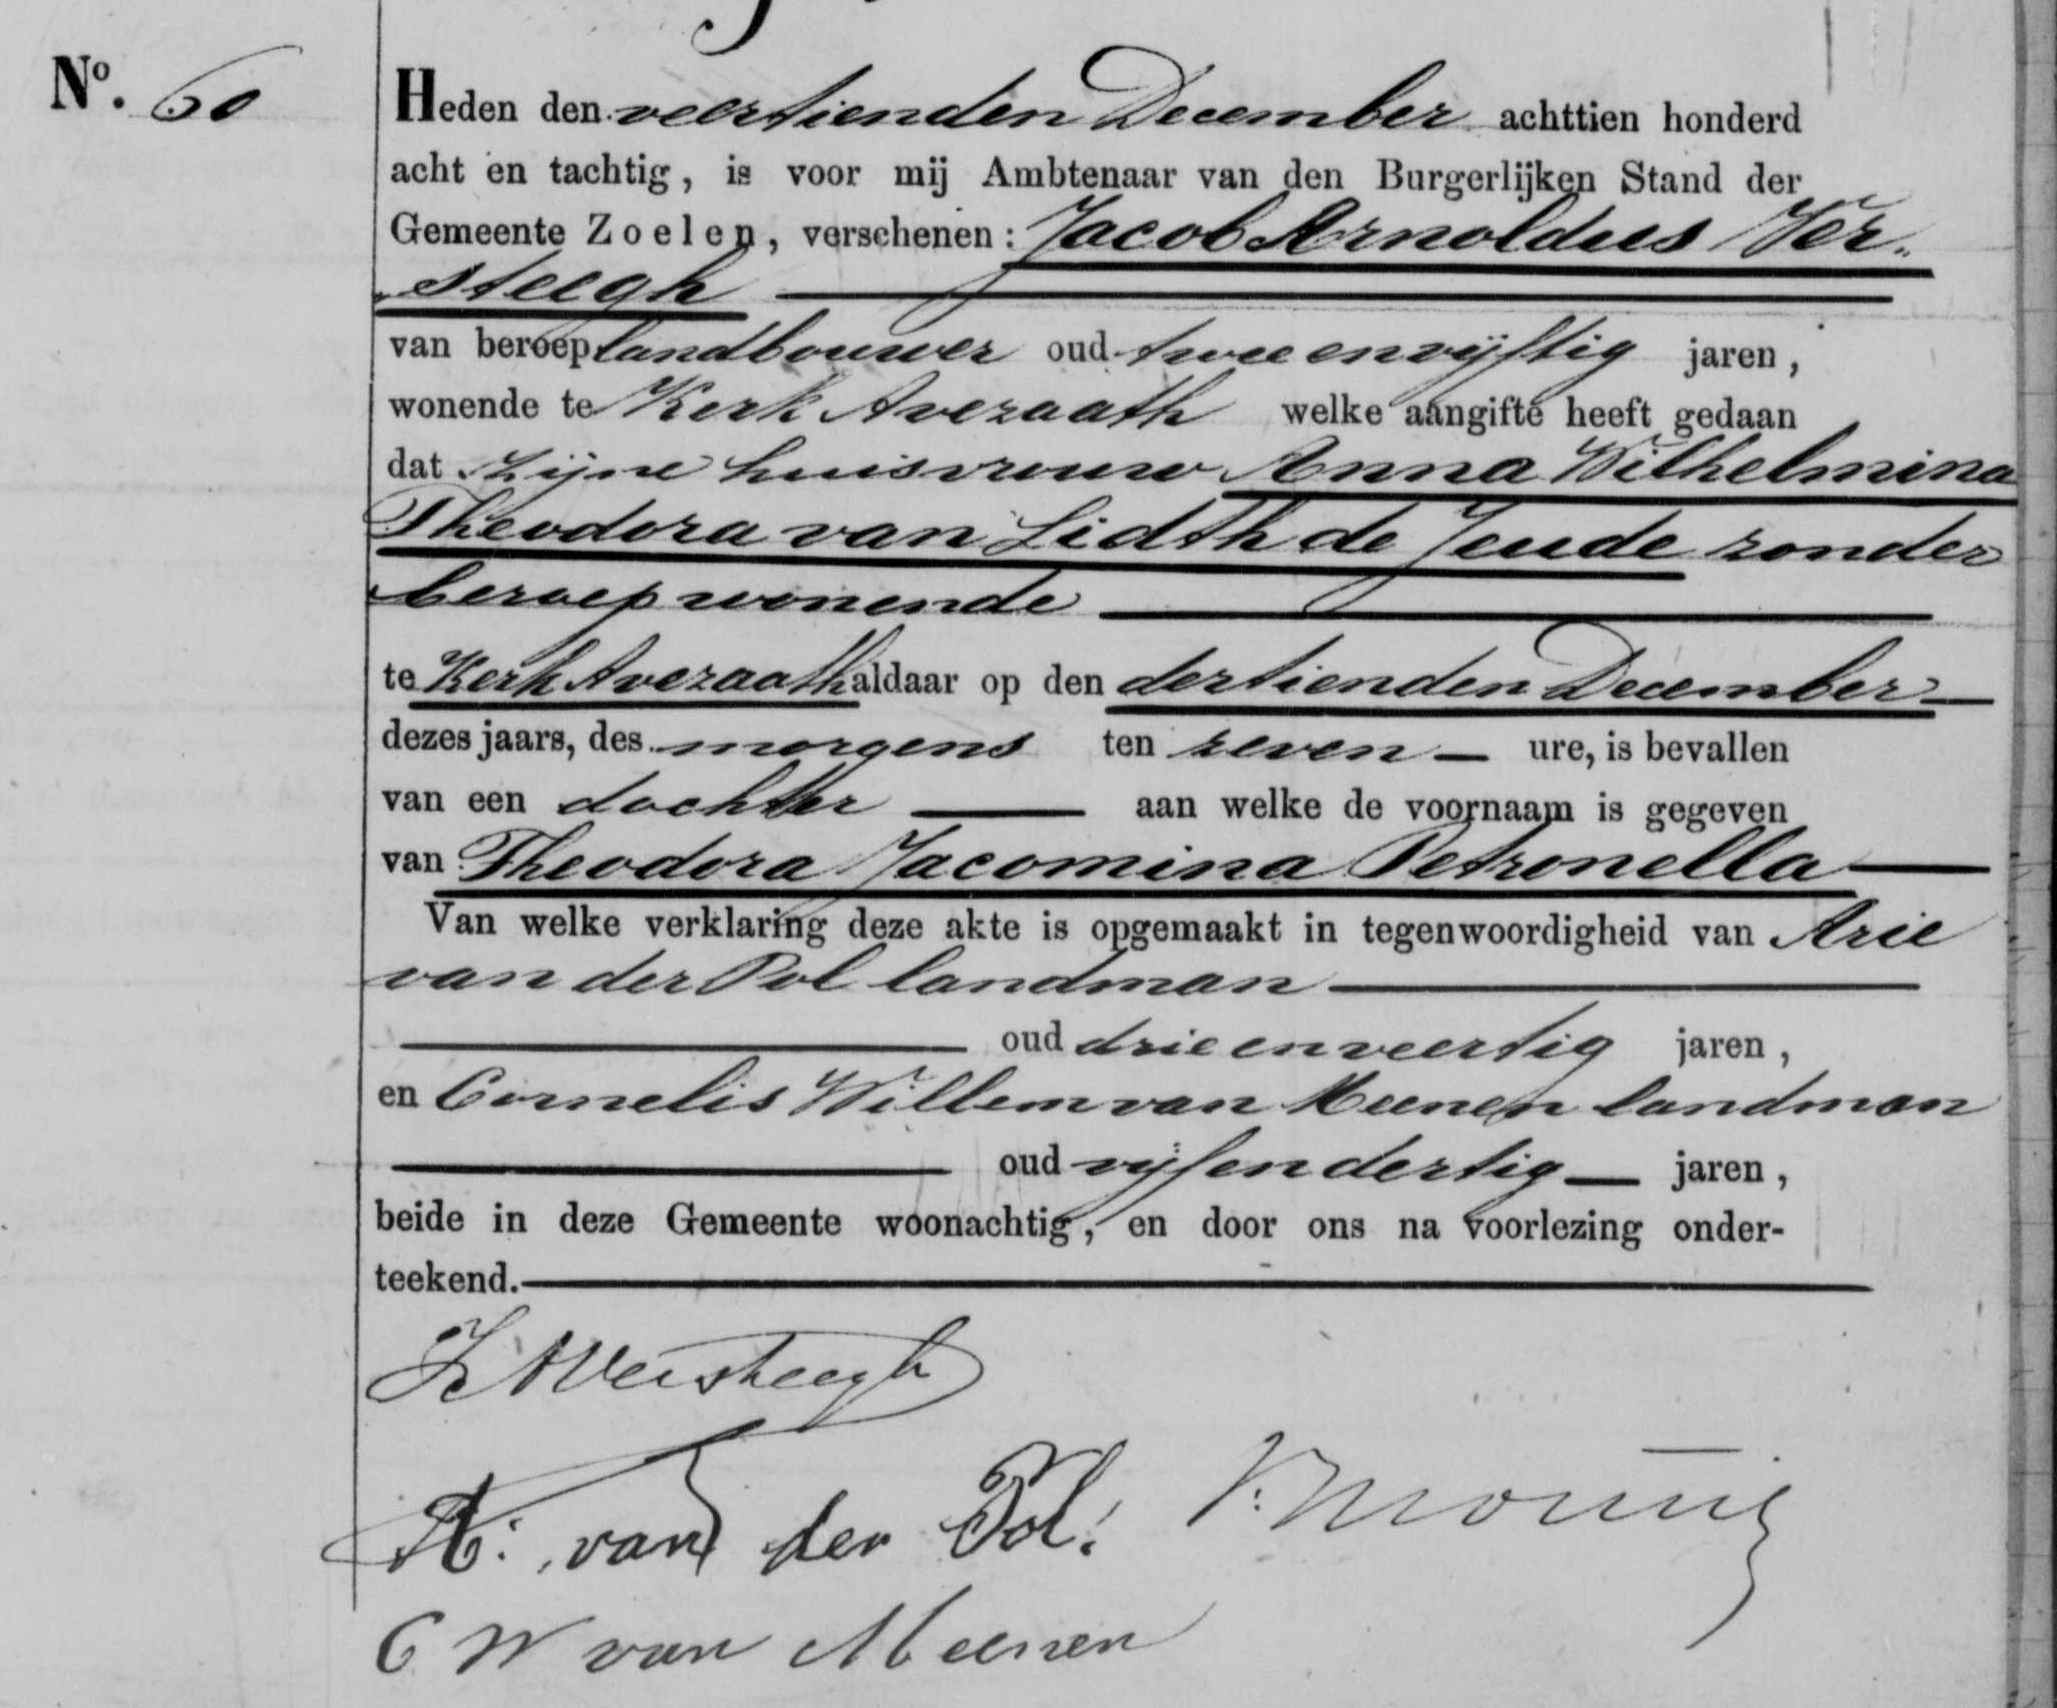 Nº. 60
Heden den veertienden December achttien honderd
acht en tachtig, is voor mij Ambtenaar van den Burgerlijken Stand der
Gemeente Zoelen, verschenen: Jacob Arnoldus Ver„
„steegh
van beroep landbouwer oud twee en vijftig jaren,
wonende te Kerk Avezaath welke aangifte heeft gedaan
dat zijne huisvrouw Anna Wilhelmina
Theodora van Lidth de Jeude zonder
beroep wonende
te Kerk Avezaath aldaar op den dertienden December
dezes jaars, des morgens ten zeven ure, is bevallen
van een dochter aan welke de voornaam is gegeven
van Theodora Jacomina Petronella
Van welke verklaring deze akte is opgemaakt in tegenwoordigheid van Arie
van der Pol landman
oud drie en veertig jaren,
en Cornelis Willem van Meenen landman
oud vijf en dertig jaren,
beide in deze Gemeente woonachtig, en door ons na voorlezing onder-
teekend.
JA Versteegh
A: van der Pol.
C W van Meenen